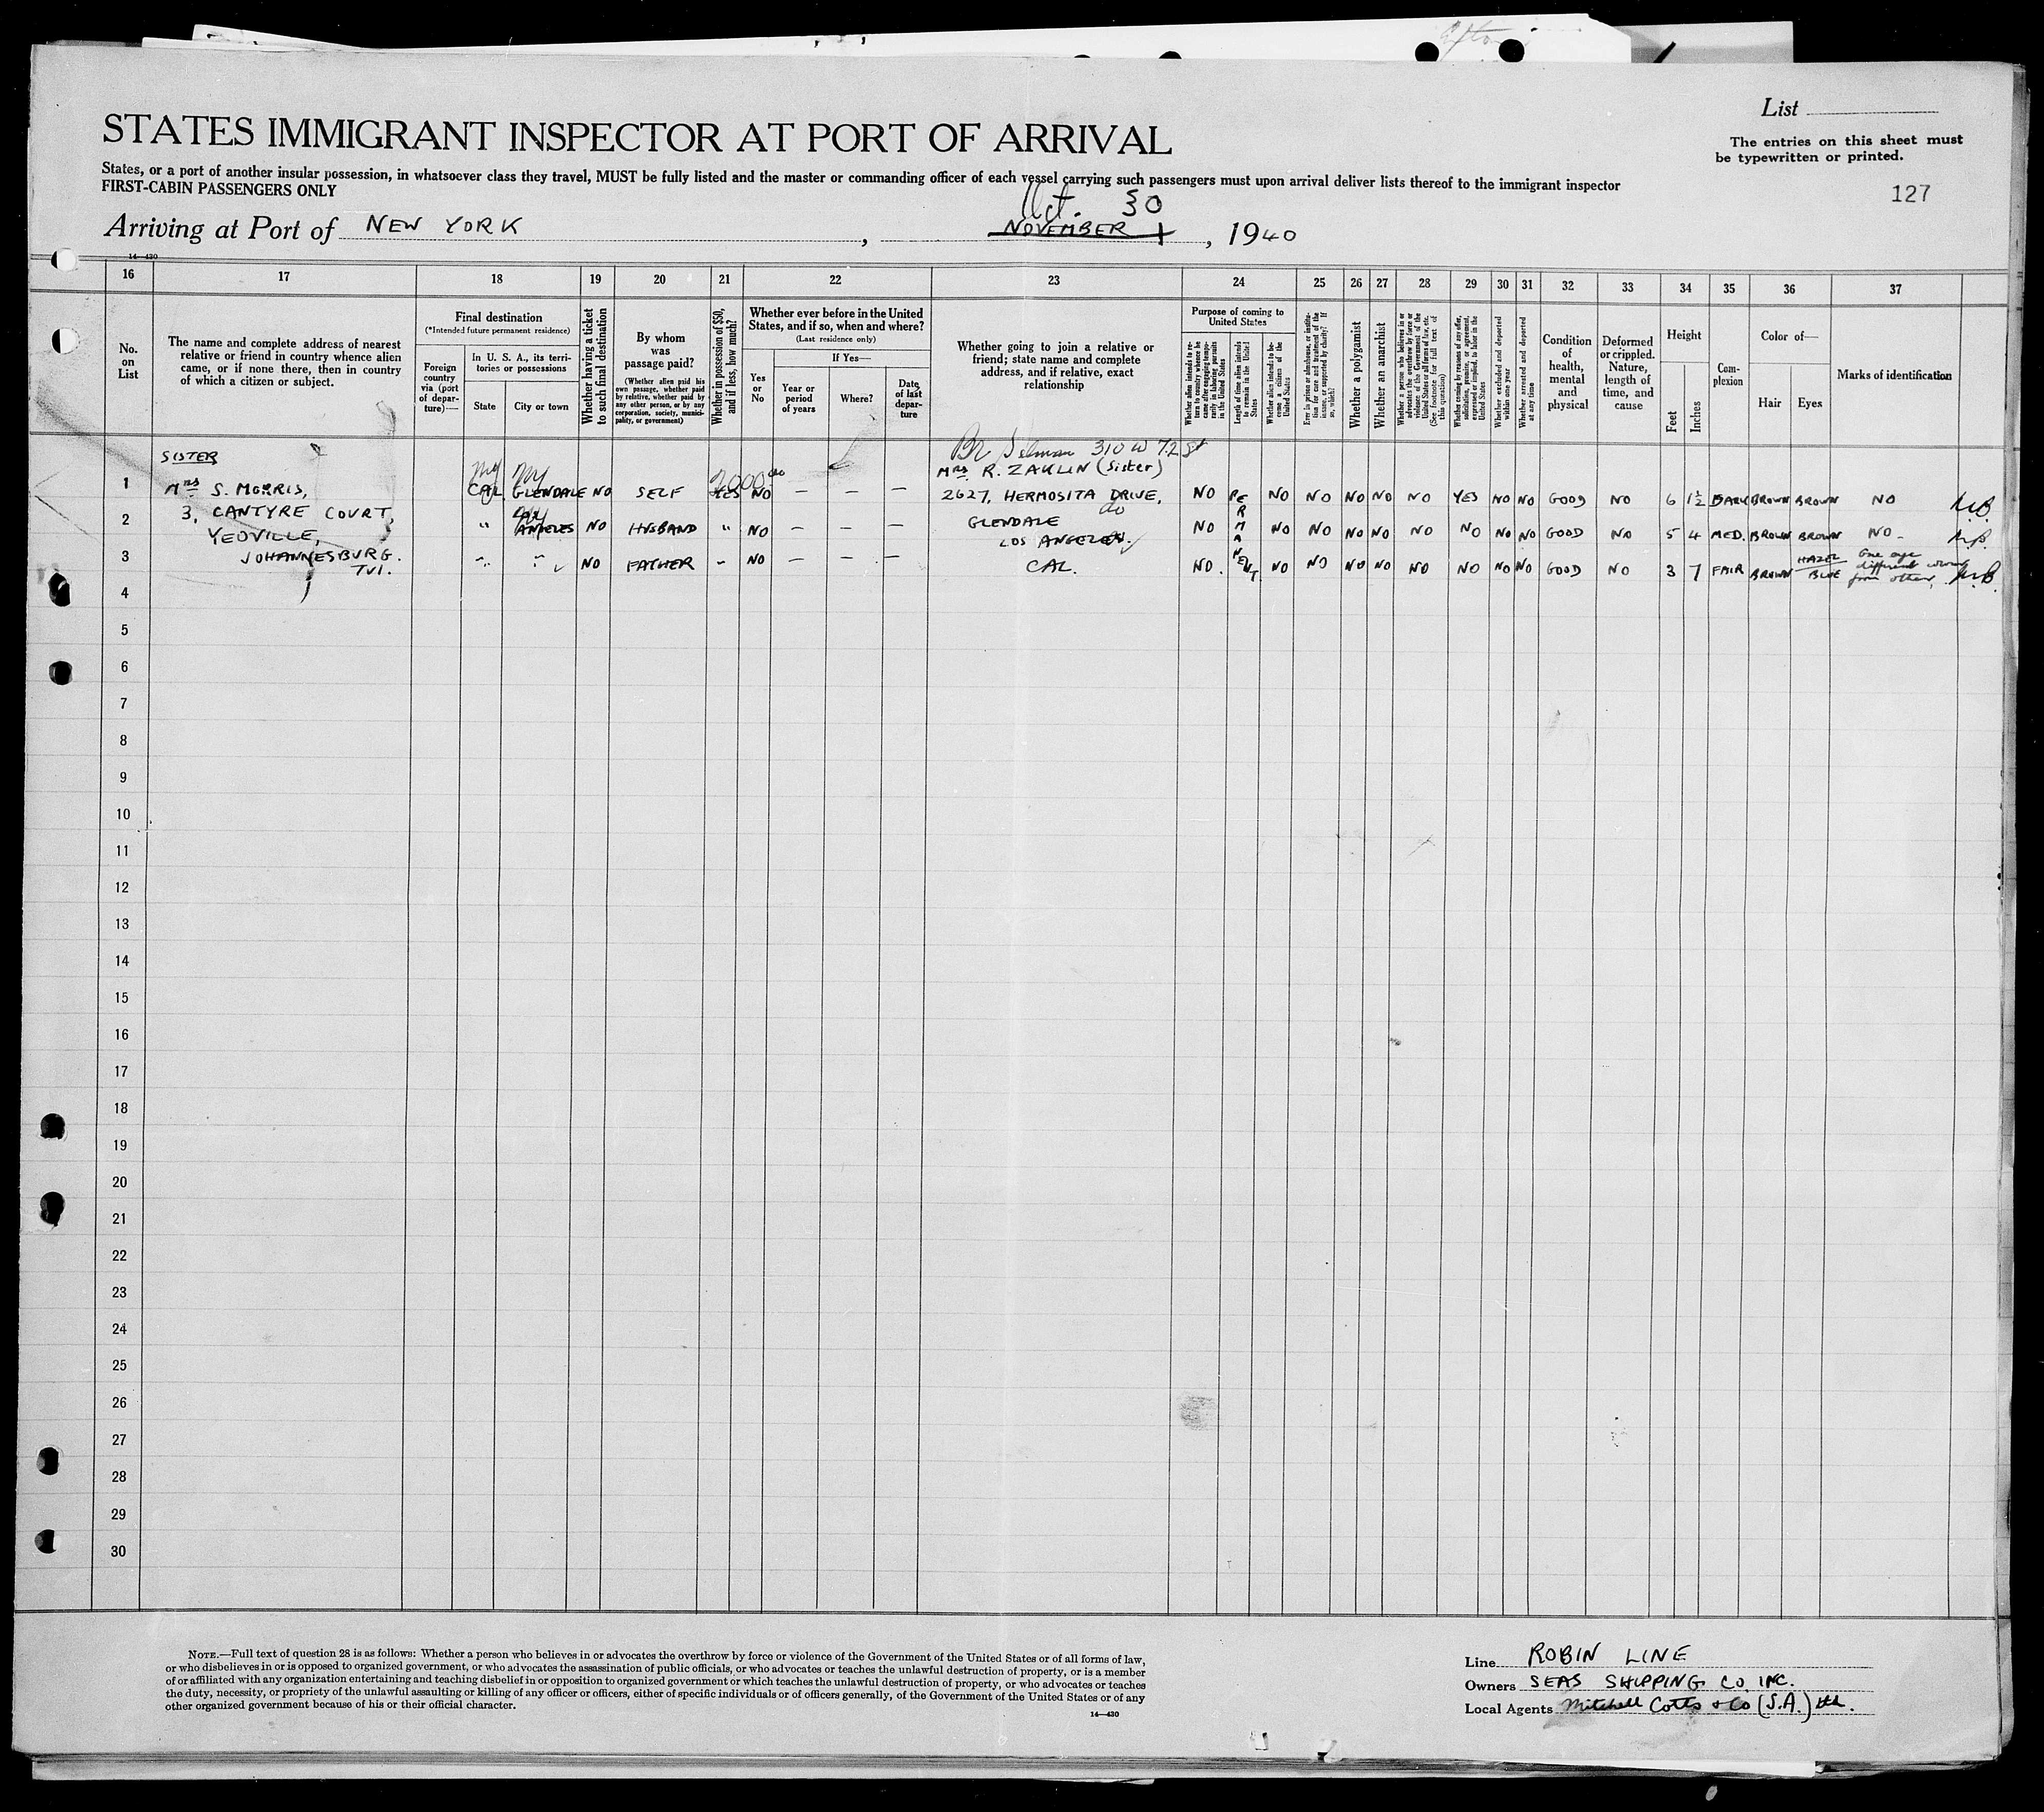 List
STATES IMMIGRANT INSPECTOR AT PORT OF ARRIVAL
The entries on this sheet must
be typewritten or printed.
States, or a port of another insular possession, in whatsoever class they travel, MUST be fully listed and the master or commanding officer of each vessel carrying such passengers must upon arrival deliver lists thereof to the immigrant inspector
FIRST-CABIN PASSENGERS ONLY
127
Oct. 30
Arriving at Port of NEW YORK, NOVEMBER 1, 1940
14—430
16 17 18 19 20 21 22 23 24 25 26 27 28 29 30 31 32 33 34 35 36 37
No. on List
The name and complete address of nearest
relative or friend in country whence alien
came, or if none there, then in country
of which a citizen or subject.
Final destination
(*Intended future permanent residence)
Foreign country via (port of departure)—
In U. S. A., its territories or possessions
State
City or town
Whether having a ticket to such final destination
By whom was passage paid?
(Whether alien paid his own passage, whether paid by relative, whether paid by any other person, or by any corporation, society, municipality, or government)
Whether in possession of $50, and if less, how much?
Whether ever before in the United States, and if so, when and where?
(Last residence only)
Yes or No
If Yes—
Year or period of years
Where?
Date of last departure
Whether going to join a relative or
friend; state name and complete
address, and if relative, exact
relationship
Purpose of coming to United States
Whether alien intends to return to country whence he came after engaging temporarily in laboring pursuits in the United States
Length of time alien intends to remain in the United States
Whether alien intends to become a citizen of the United States
Ever in prison or almshouse, or institution for care and treatment of the insane, or supported by charity? If so, which?
Whether a polygamist
Whether an anarchist
Whether a person who believes in or advocates the overthrow by force or violence of the Government of the United States or all forms of law, etc. (See footnote for full text of this question)
Whether coming by reasons of any offer, solicitation, promise, or agreement, expressed or implied, to labor in the United States
Whether excluded and deported within one year
Whether arrested and deported at any time
Condition of health, mental and physical
Deformed or crippled. Nature, length of time, and cause
Height
Feet
Inches
Complexion
Color of—
Hair
Eyes
Marks of identification
SISTER
310 W 72 St
NY NY 2000
Mrs R. ZAKLIN (Sister)
1 Mrs S. MORRIS, CAL GLENDALE NO SELF YES NO — — — 2627, HERMOSITA DRIVE, NO PERMANENT NO NO NO NO NO YES NO NO GOOD NO 6 1½ DARK BROWN BROWN NO
do
2 3, CANTYRE COURT, YEOVILLE, " ANGELES NO HUSBAND " NO — — — GLENDALE LOS ANGELES. NO NO NO NO NO NO NO NO NO GOOD NO 5 4 MED. BROWN BROWN NO-
3 JOHANNESBURG. TVL. " " NO FATHER " NO — — — CAL. NO. NO NO NO NO NO NO NO NO GOOD NO 3 7 FAIR BROWN HAZEL BLUE One eye different from other,
4
5
6
7
8
9
10
11
12
13
14
15
16
17
18
19
20
21
22
23
24
25
26
27
28
29
30
NOTE.—Full text of question 28 is as follows: Whether a person who believes in or advocates the overthrow by force or violence of the Government of the United States or of all forms of law,
or who disbelieves in or is opposed to organized government, or who advocates the assassination of public officials, or who advocates or teaches the unlawful destruction of property, or is a member
of or affiliated with any organization entertaining and teaching disbelief in or opposition to organized government or which teaches the unlawful destruction of property, or who advocates or teaches
the duty, necessity, or propriety of the unlawful assaulting or killing of any officer or officers, either of specific individuals or of officers generally, of the Government of the United States or of any
other organized government because of his or their official character.
14—430
Line ROBIN LINE
Owners SEAS SHIPPING CO. INC.
Local Agents Mitchell Cotts & Co (S.A.) Ltd.